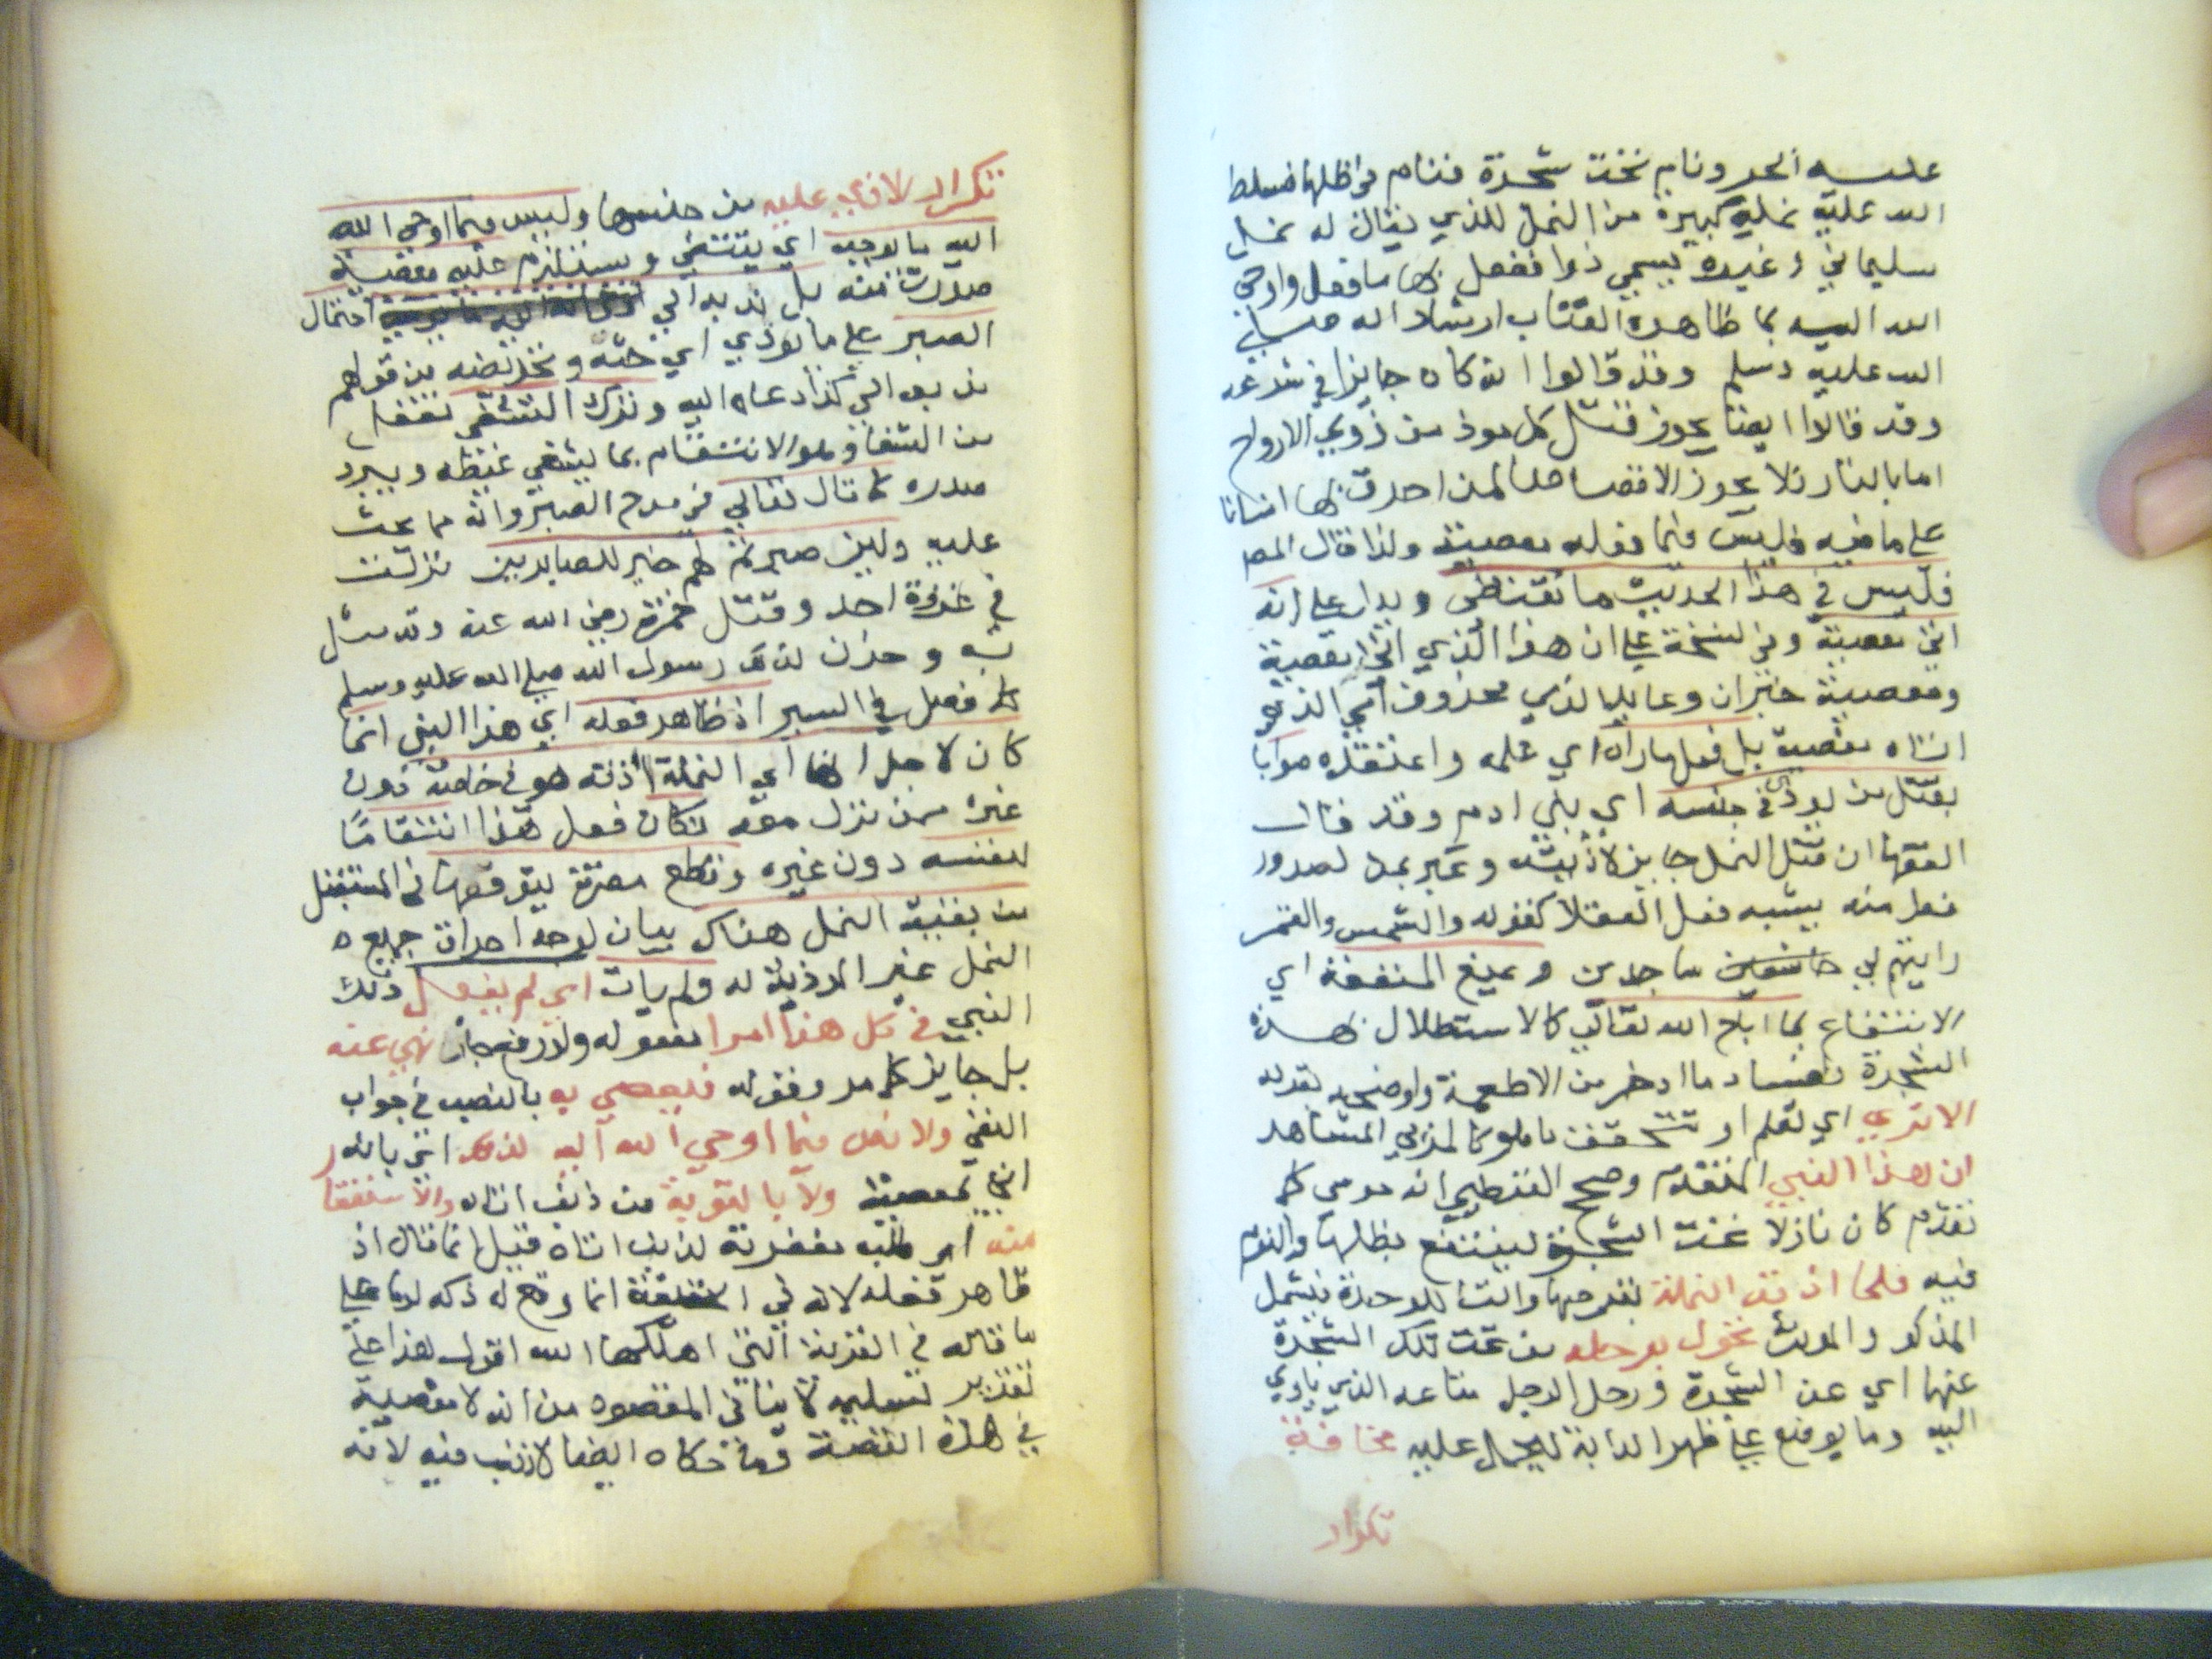 عليه الحر ونام تحت شجرة فنام في ظلها فسلط
الله عليه نملة كبيرة من النمل الذي يقال له نمل
سليماني او غيره يسمي ذرا ففعل بها ما فعل واوحي
الله اليه بما ظاهره العتاب ارشادا له صلي
الله عليه وسلم وقد قالوا انه كان جايزا في شرعه
وقد قالوا ايضا يجوز قتل كل موذ من ذوي الارواح
اما بالنار فلا يجوز الا قصاصا لمن احرق بها انسانا
علي ما فيه فليس فيما فعله معصية ولذا قال المص
فليس في هذا الحديث ما يقتضي ويدل علي انه
اتي معصية وفي نسخة علي ان هذا الذي اتي معصية
ومعصية خبر ان وعايد الذي محذوف اي الذي
اتاه معصية بل فعل ما راه اي علمه واعتقده صوابا
بقتل من يوذي جنسه اي بني ادم وقد قال
الفقها ان قتل النمل جايز لاذيته وعبر بمن لصدور
فعل منه يشبه فعل العقلا كقوله والشمس والقمر
رايتهم لي ساجدين ويمنع المنفعة اي
الانتفاع بما اباح الله تعالي كالاستظلال بهذه
الشجرة وفساد ما ادخر من الاطعمة واوضحه بقوله
الا تري اي تعلم او تتحقق ما هو كالمري المشاهد
ان هذا النبي المتقدم وصحح القرطبي انه موسي كما
تقدم كان نازلا تحت الشجرة لينتفع بظلها والنوم
فيه فلما اذته النملة بقرصها والتا للوحدة فيشمل
المذكر والمونث تحول برحله من تحت تلك الشجرة
عنها اي عن الشجرة ورحل الرجل متاعه الذي ياوي
اليه وما يوضع علي ظهر الدابة ليحمل عليه مخافة
تكرار
تكرار الاذي عليه من جنسها وليس فيما اوحي الله
اليه ما يوجب اي يقتضي ويستلزم عليه معصية
صدرت منه بل ندبه الي احتمال
الصبر علي ما يوذي اي حثه وتحريضه من قولهم
ندبه الي كذا دعاه اليه وترك التشفي تفعل
من الشفا وهو الانتقام بما يشفي غيظه ويبرد
صدره كما قال تعالي في مدح الصبر وانه مما يحث
عليه ولين صبرتم لهو خير للصابرين نزلت
في غزوة احد وقتل حمزة رضي الله عنه وقد مثل
به وحزن لذلك رسول الله صلي الله عليه وسلم
كما فصل في السير اذ ظاهر فعله اي هذا النبي انما
كان لاجل انها اي النملة اذته هو في خاصته دون
غيره ممن نزل معه فكان فعل هذا انتقاما
لنفسه دون غيره وقطع مضرة يتوقعها في المستقبل
من بقية النمل هناك بيان لوجه احراق جميع
النمل غير الموذية له ولم يات اي لم يفعل ذلك
النبي في كل هذا امرا بفعوله ولا رفع نهي عنه
بل جايز كما مر وقوله فيعصي به بالنصب في جواب
النفي ولا نص فيما اوحي الله اليه لذلك اي بانه
اتي بمعصية ولا بالتوبة من ذنب اتاه والاستغفار
منه اي طلب مغفرة لذنب اتاه قيل انما قال اذ
ظاهر فعله لانه في الحقيقة انما وقع له ذلك لما علي
ما قاله في القرية التي اهلكها الله اقول هذا علي
تقدير تسليمه لا ينافي المقصود من انه لا معصية
في هذه القصة وما حكاه ايضا لا ذنب فيه لانه